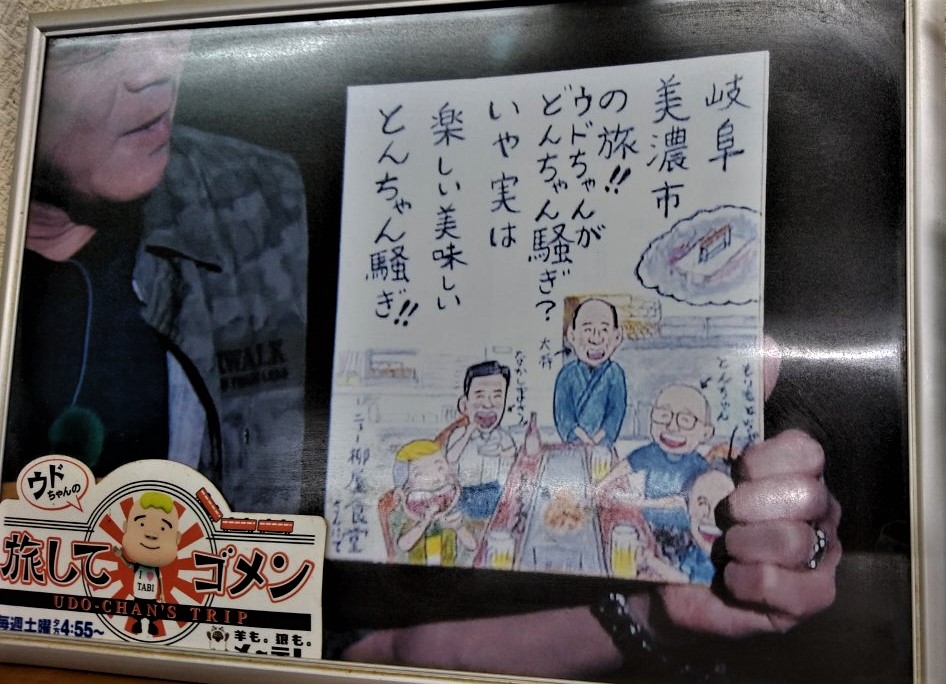 岐阜
美濃市
の旅!!
ウドちゃんが
どんちゃん騒ぎ?
いや実は
楽しい美味しい
とんちゃん騒ぎ!!
大将
なかしまさん
とんちゃん
ニュー柳屋食堂
さんにて
WALK
ウド
ちゃんの
旅して
ゴメン
I
TABI
UDO-CHAN'S TRIP
毎週土曜夕方4:55~
羊も。狼も。
メ~テレ